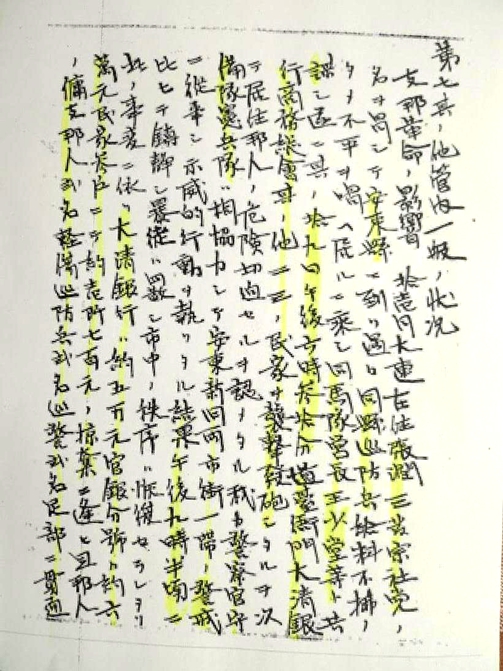 第七其ノ他管内一般ノ状況
支那革命ノ影響 拾壱月大連在住張 三 宗社党ノ
名ヲ冒シテ安東県ニ到リ 同県巡防兵給料不払ノ
不平ヲ唱ヘ居ルニ乗シ同馬隊営長王少堂等ト共
謀シ 拾九日午後六時参拾分道 衙門大清銀
行商務総会其ノ他二三ノ民家ヲ襲撃発砲シタルヲ以
テ居住邦人ノ危険切迫セルヲ認メタル我カ警察官守
備隊憲兵隊ト相協力シテ安東新旧両市街一帯ノ警戒
ニ従事シ示威的行動ヲ執リタル結果午後九時半頃ニ
シテ鎮静シ暴徒ハ四散シ市中ノ秩序ハ恢復セラレタリ
此ノ事変ニ依リ大清銀行ハ約五万元官銀分号ハ約六
萬元民家参戸ニテ約壱 七百元ノ掠奪ニ逢ヒ且邦人
ノ傭支那人弐名軽傷巡防兵弐名巡警弐名足部ニ貫通